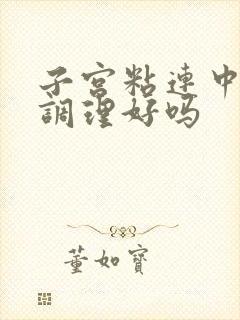 子宫粘连中
調理好吗
董如寶